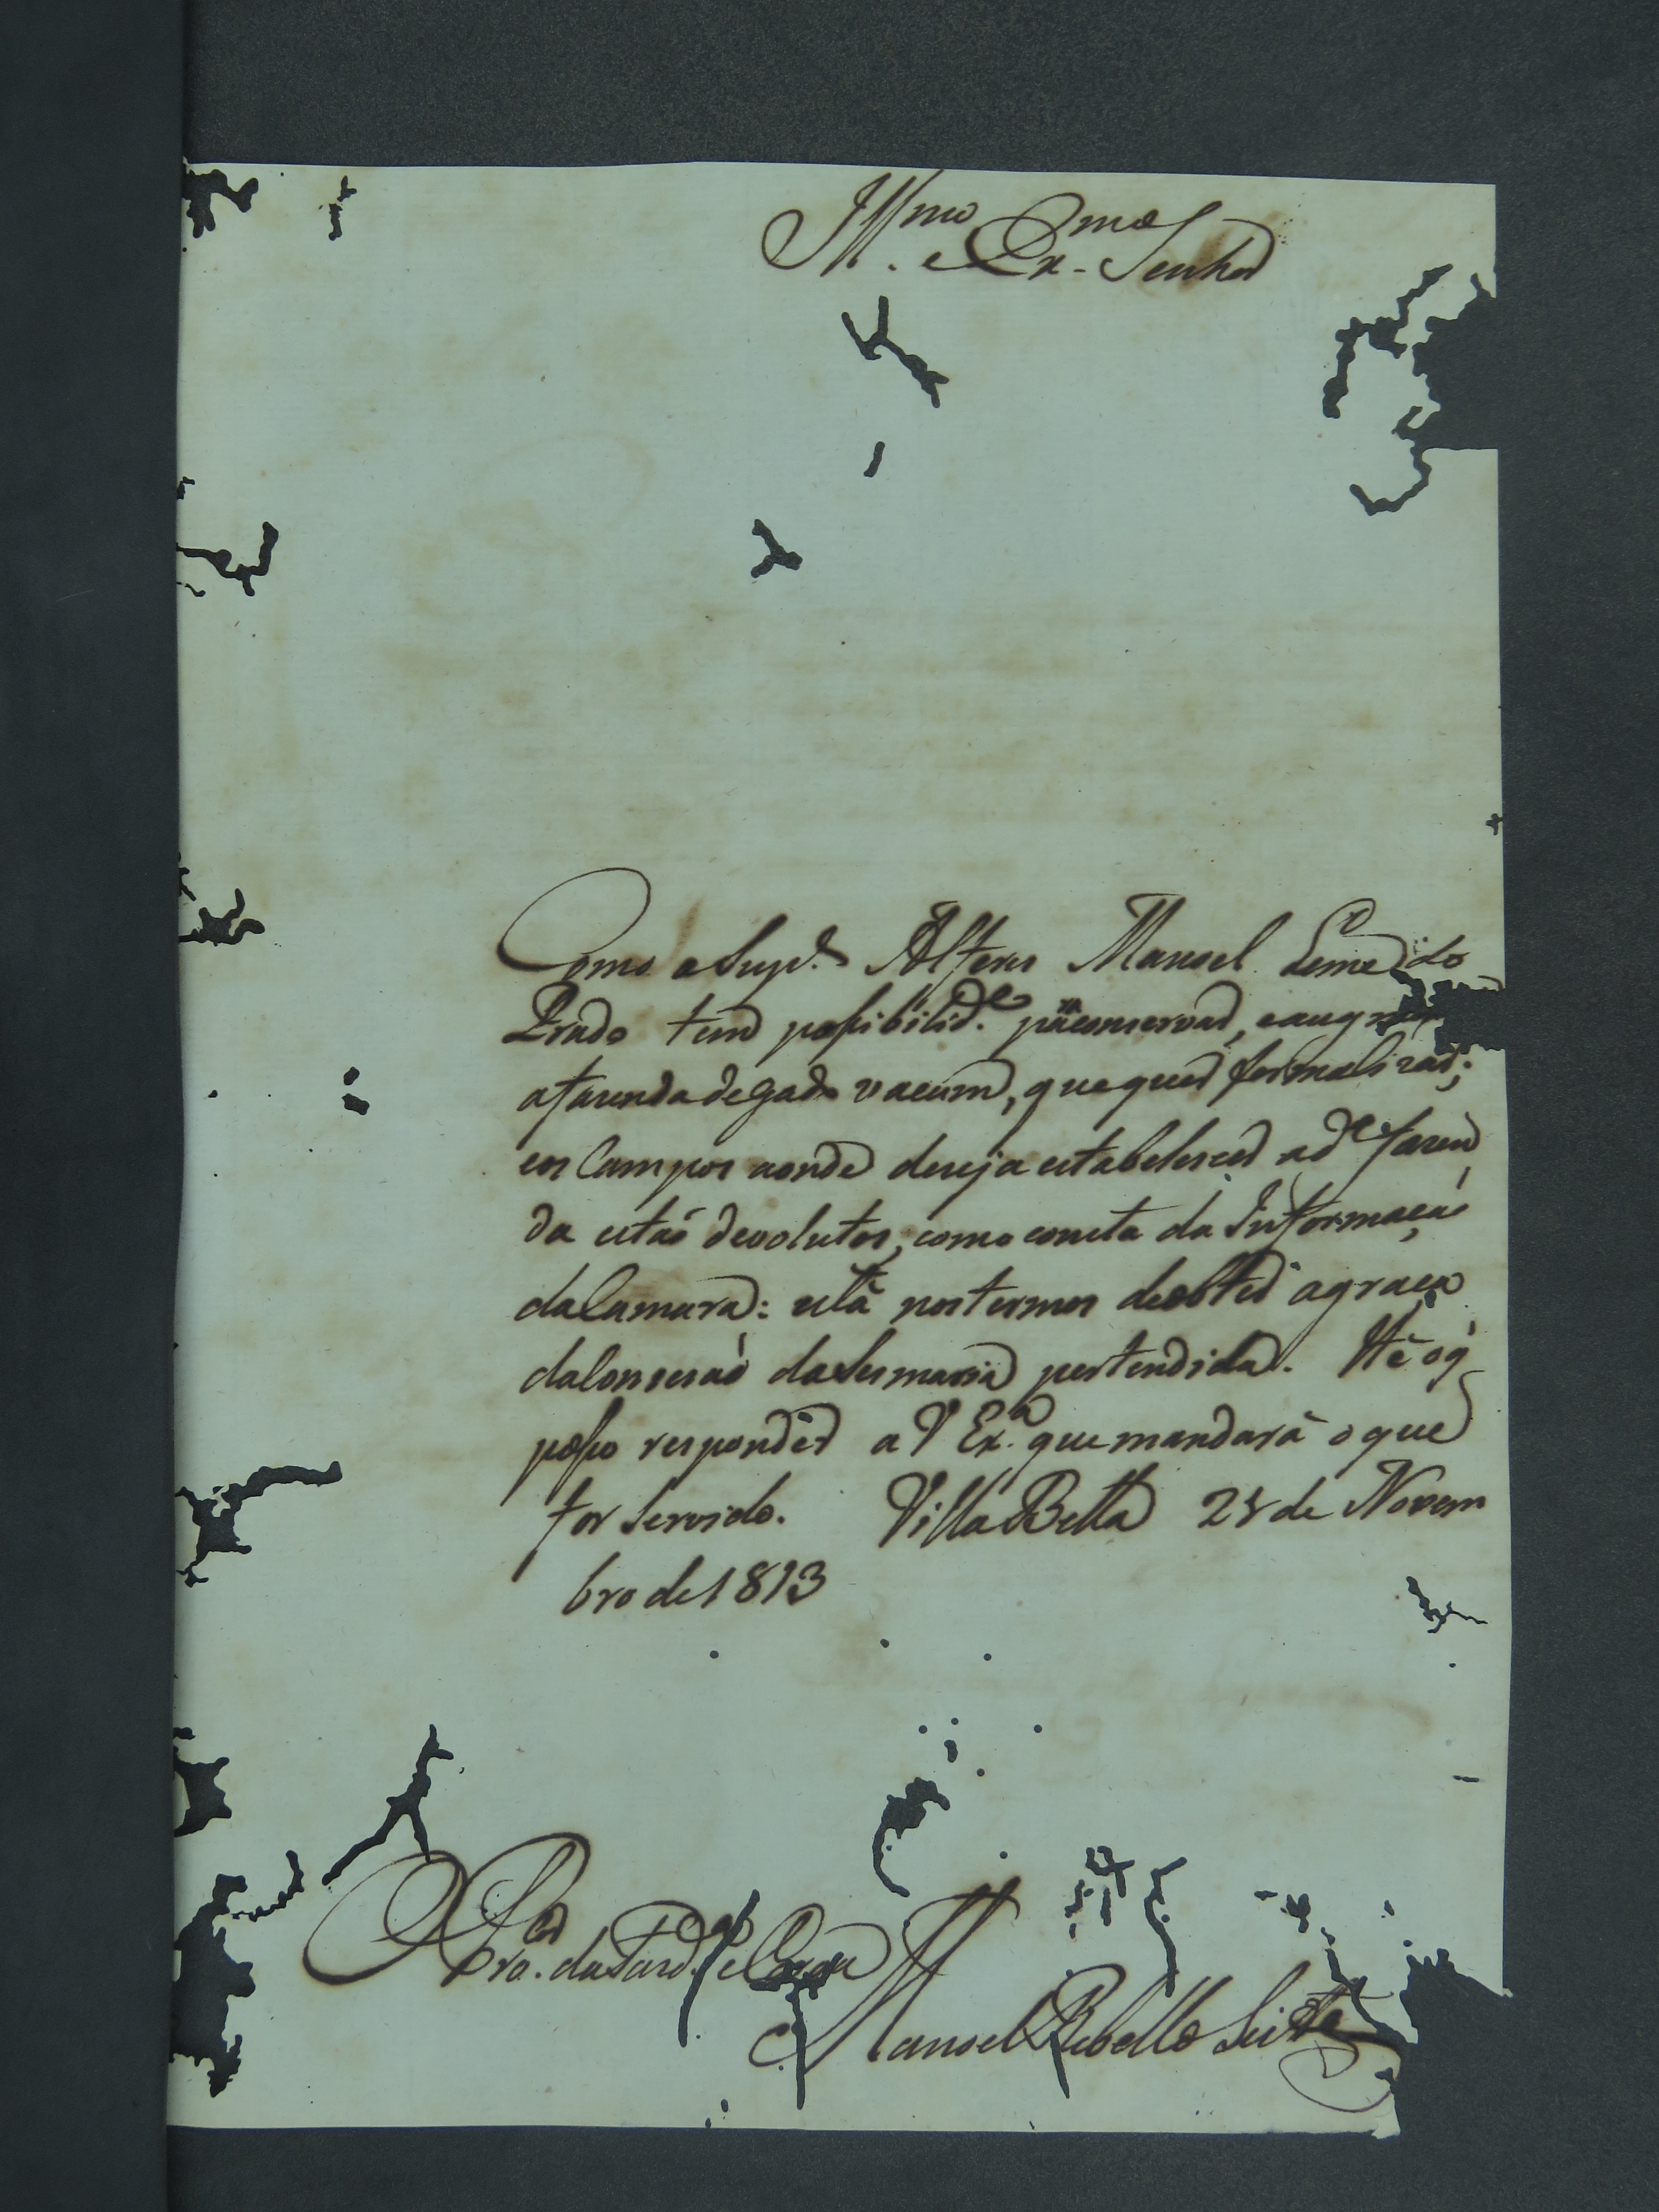 Illmo. e Exmo. Senhor
Como o Supe. Alferes Manoel Leme do
Prado tem possibilide. pa. conservar, e aug
a fazenda de gado vacum, que quer formalizar;
e os Campos aonde deseja estabelescer a de. fazen
da estaõ devolutos, como consta da Informaçaõ
da Camara: està nos termos de obter a graça
da Conseçaõ da Sesmaria pertendida. Hè o q̃
posso responder a V Exa. que mandarà o que
for Servido. Villa Bella 28 de Novem
bro de 1813
O Procor. da Fazda. e Coroa
Manoel Rebello Leite